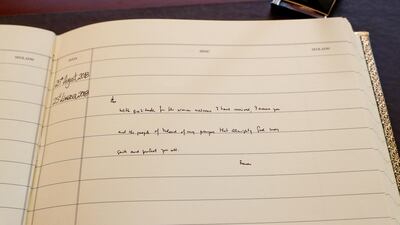 SEOLADH DÁTA AINM SEOLADH
25th August, 2018
25ú Lúnasa, 2018
With gratitude for the warm welcome I have received, I assure you
and the people of Ireland of my prayers that Almighty God may
guide and protect you all.